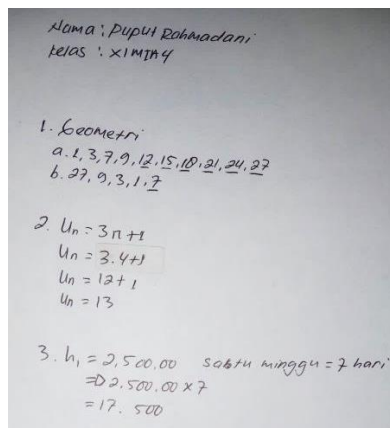 Nama : Puput Rahmadani
Kelas : XI MIA 4
1. Geometri
a. 1, 3, 7, 9, 12, 15, 18, 21, 24, 27
b. 27, 9, 3, 1, 7
2. Un = 3n + 1
Un = 3.4+1
Un = 12+1
Un = 13
3. h1 = 2,500.00 sabtu minggu = 7 hari
=D 2.500.00 x 7
= 17.500